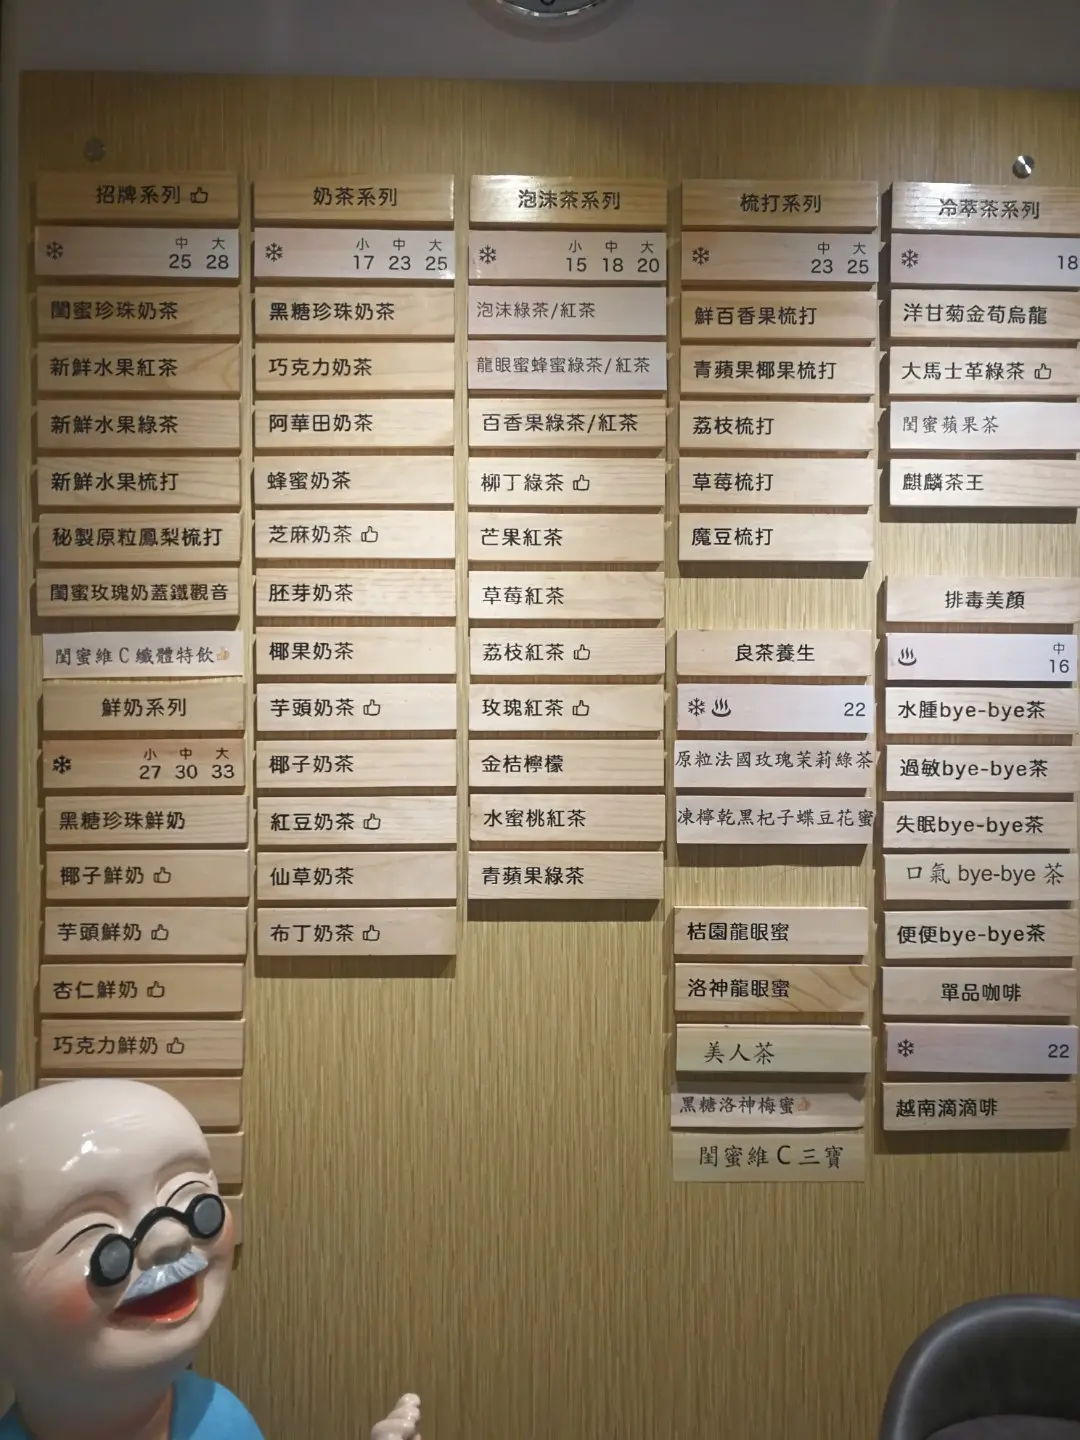 招牌系列
中 大
25 28
閨蜜珍珠奶茶
新鮮水果紅茶
新鮮水果綠茶
新鮮水果梳打
秘製原粒鳳梨梳打
閨蜜玫瑰奶蓋鐵觀音
閨蜜維C纖體特飲
鮮奶系列
小 中 大
27 30 33
黑糖珍珠鮮奶
椰子鮮奶
芋頭鮮奶
杏仁鮮奶
巧克力鮮奶
奶茶系列
小 中 大
17 23 25
黑糖珍珠奶茶
巧克力奶茶
阿華田奶茶
蜂蜜奶茶
芝麻奶茶
胚芽奶茶
椰果奶茶
芋頭奶茶
椰子奶茶
紅豆奶茶
仙草奶茶
布丁奶茶
泡沫茶系列
小 中 大
15 18 20
泡沫綠茶/紅茶
龍眼蜜蜂蜜綠茶/紅茶
百香果綠茶/紅茶
柳丁綠茶
芒果紅茶
草莓紅茶
荔枝紅茶
玫瑰紅茶
金桔檸檬
水蜜桃紅茶
青蘋果綠茶
梳打系列
中 大
23 25
鮮百香果梳打
青蘋果椰果梳打
荔枝梳打
草莓梳打
魔豆梳打
良茶養生
22
原粒法國玫瑰茉莉綠茶
凍檸乾黑杞子蝶豆花蜜
桔園龍眼蜜
洛神龍眼蜜
美人茶
黑糖洛神梅蜜
閨蜜維C三寶
冷萃茶系列
18
洋甘菊金萄烏龍
大馬士革綠茶
閨蜜蘋果茶
麒麟茶王
排毒美顏
中
16
水腫bye-bye茶
過敏bye-bye茶
失眠bye-bye茶
口氣 bye-bye 茶
便便bye-bye茶
單品咖啡
22
越南滴滴啡